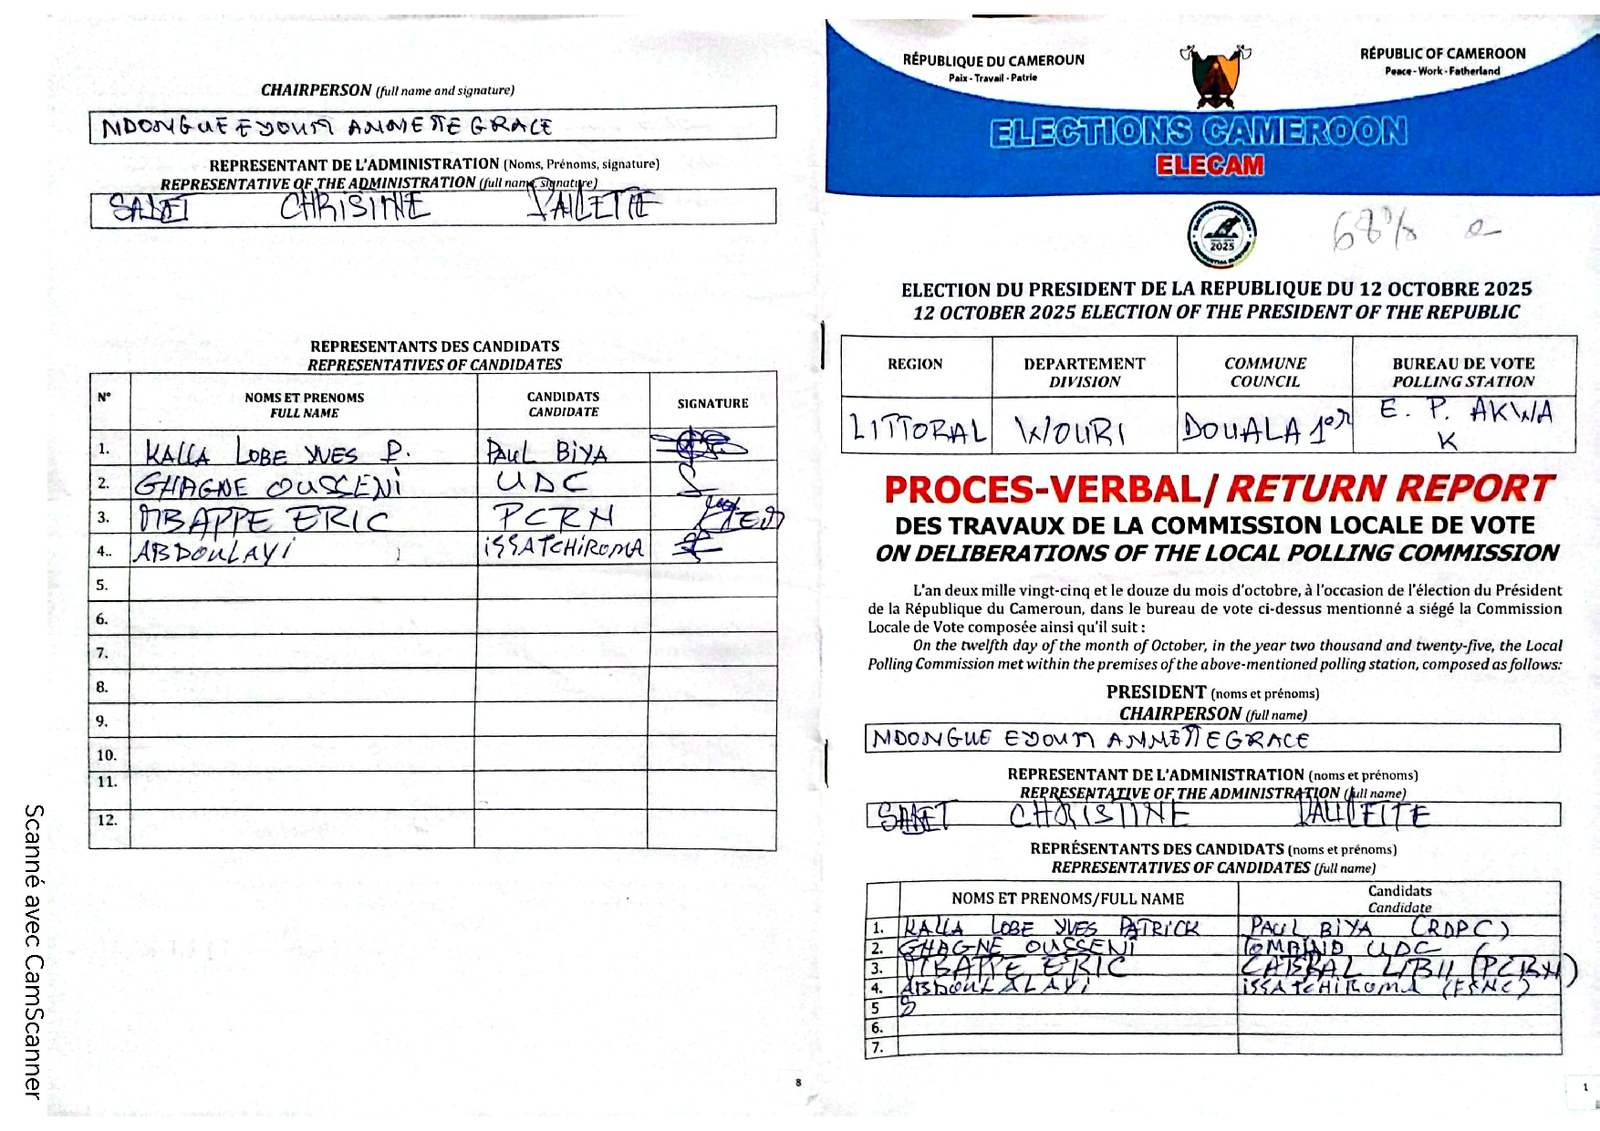 CHAIRPERSON (full name and signature)
NDONGUE EDOUM ANNETTE GRACE
REPRESENTANT DE L'ADMINISTRATION (Noms, Prénoms, signature)
REPRESENTATIVE OF THE ADMINISTRATION (full name, signature)
CHRISTINE
REPRESENTANTS DES CANDIDATS
REPRESENTATIVES OF CANDIDATES
N° NOMS ET PRENOMS CANDIDATS SIGNATURE
FULL NAME CANDIDATE
1. KALLA LOBE YVES P. PAUL BIYA
2. GHAGNE OUSSENI UDC
3. MBAPPE ERIC PCRN
4.. ABDOULAYI ISSATCHIROMA
5.
6.
7.
8.
9.
10.
11.
12.
8
Scanné avec CamScanner
RÉPUBLIQUE DU CAMEROUN
Paix - Travail - Patrie
RÉPUBLIC OF CAMEROON
Peace - Work - Fatherland
ELECTIONS CAMEROON
ELECAM
2025
68%
ELECTION DU PRESIDENT DE LA REPUBLIQUE DU 12 OCTOBRE 2025
12 OCTOBER 2025 ELECTION OF THE PRESIDENT OF THE REPUBLIC
REGION DEPARTEMENT COMMUNE BUREAU DE VOTE
DIVISION COUNCIL POLLING STATION
LITTORAL WOURI DOUALA 1er E. P. AKWA
K
PROCES-VERBAL/ RETURN REPORT
DES TRAVAUX DE LA COMMISSION LOCALE DE VOTE
ON DELIBERATIONS OF THE LOCAL POLLING COMMISSION
L'an deux mille vingt-cinq et le douze du mois d'octobre, à l'occasion de l'élection du Président
de la République du Cameroun, dans le bureau de vote ci-dessus mentionné a siégé la Commission
Locale de Vote composée ainsi qu'il suit :
On the twelfth day of the month of October, in the year two thousand and twenty-five, the Local
Polling Commission met within the premises of the above-mentioned polling station, composed as follows:
PRESIDENT (noms et prénoms)
CHAIRPERSON (full name)
NDONGUE EDOUM ANNETTE GRACE
REPRESENTANT DE L'ADMINISTRATION (noms et prénoms)
REPRESENTATIVE OF THE ADMINISTRATION (full name)
CHRISTINE
REPRÉSENTANTS DES CANDIDATS (noms et prénoms)
REPRESENTATIVES OF CANDIDATES (full name)
NOMS ET PRENOMS/FULL NAME Candidats
Candidate
1. KALLA LOBE YVES PATRICK PAUL BIYA (RDPC)
2. GHAGNE OUSSENI TOMAINO UDC
3. MBAPPE ERIC CABRAL LIBII (PCRN)
4. ABDOULALAYI ISSATCHIROMA (FSNC)
5
6.
7.
1